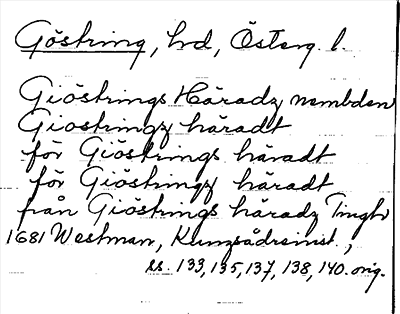 Göstring, hd, Österg. l.
Giöstrings Häradz nembden
Giöstringz häradt
för Giöstrings häradt
för Giöstringz häradt
från Giöstrings häradz Tingh
1681 Westman,
ss. 133, 135, 137, 138, 140. orig.